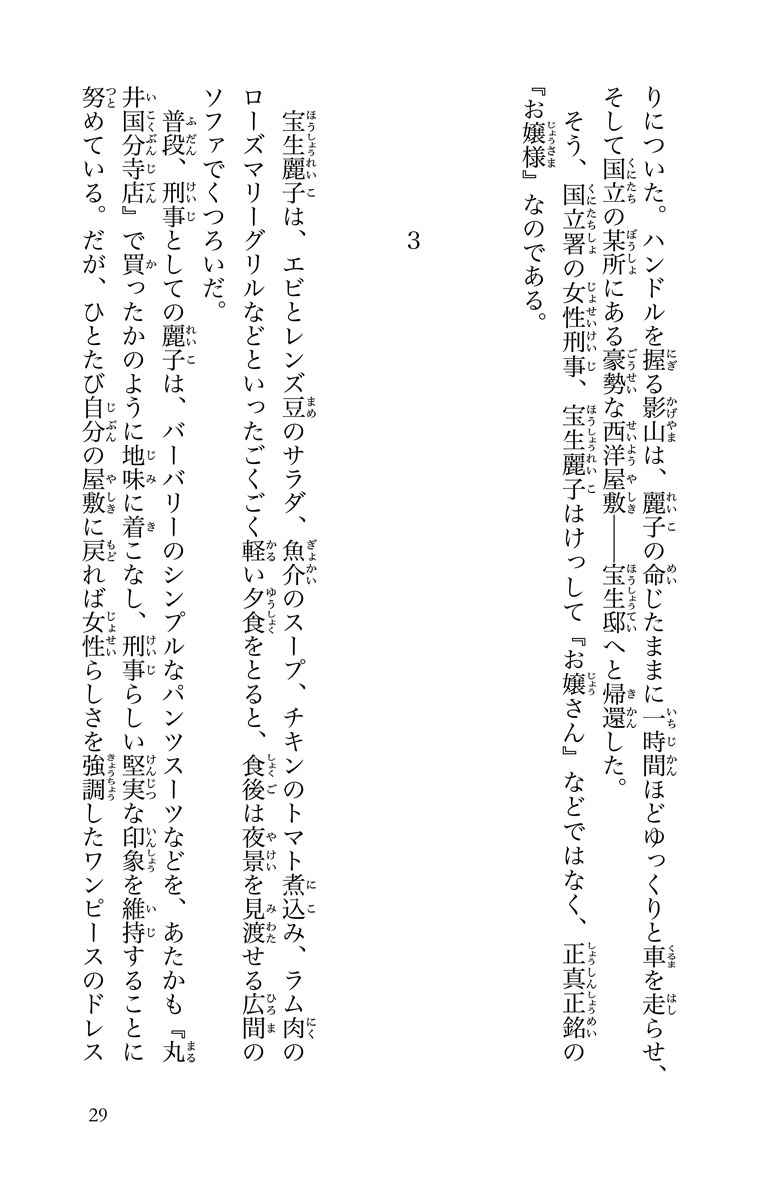 りについた。ハンドルを握る影山は、麗子の命じたままに一時間ほどゆっくりと車を走らせ、
そして国立の某所にある豪勢な西洋屋敷――宝生邸へと帰還した。
そう、国立署の女性刑事、宝生麗子はけっして『お嬢さん』などではなく、正真正銘の
『お嬢様』なのである。
3
宝生麗子は、エビとレンズ豆のサラダ、魚介のスープ、チキンのトマト煮込み、ラム肉の
ローズマリーグリルなどといったごくごく軽い夕食をとると、食後は夜景を見渡せる広間の
ソファでくつろいだ。
普段、刑事としての麗子は、バーバリーのシンプルなパンツスーツなどを、あたかも『丸
井国分寺店』で買ったかのように地味に着こなし、刑事らしい堅実な印象を維持することに
努めている。だが、ひとたび自分の屋敷に戻れば女性らしさを強調したワンピースのドレス
29